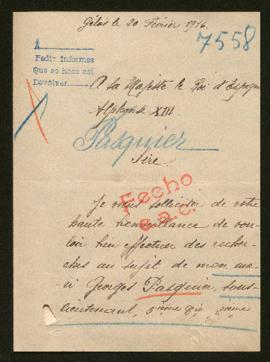 Gélos le 20 Février 1916.
7558
A
Pedir Informes
Que se hace así
Devolver
A Sa Majesté le Roi d'Espagne
Alphonse XIII
Pasquier
Sire
Fecho
Je viens solliciter de votre
haute bienveillance de vou-
loir bien effectuer des recher-
ches au sujet de mon ma-
ri Georges Pasquier, sous-
lieutenant,